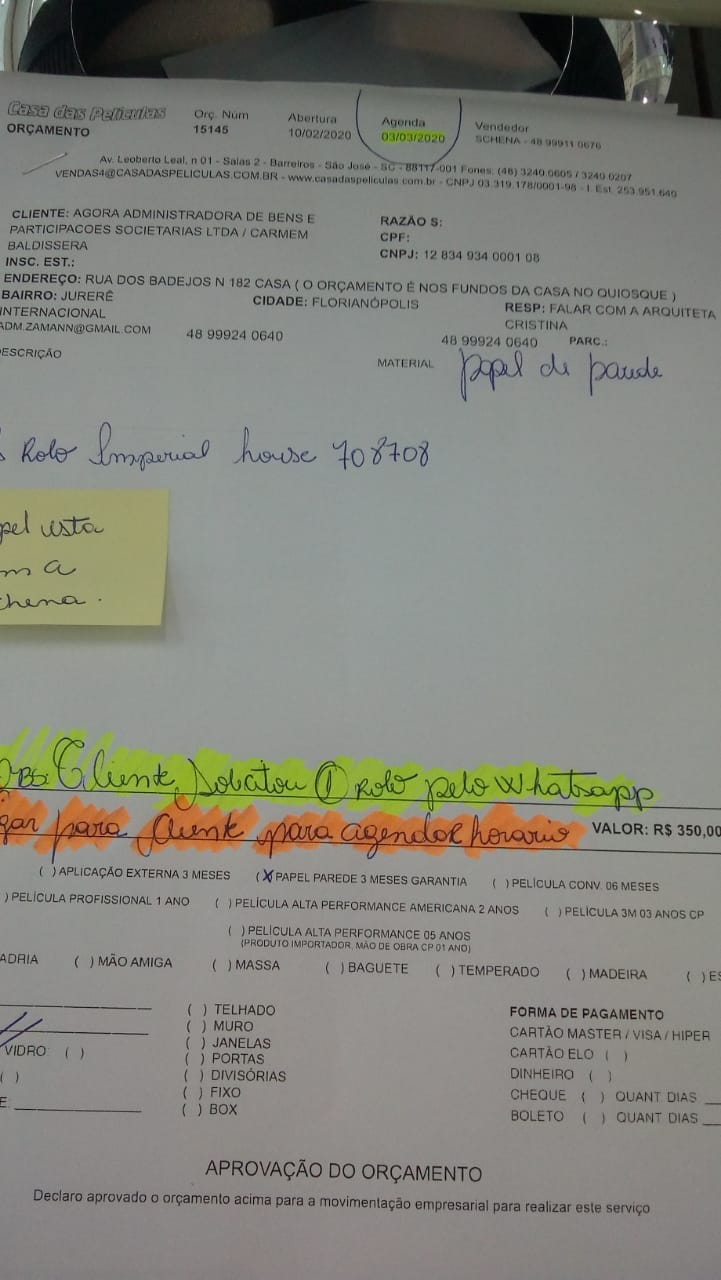 Casa das Películas
ORÇAMENTO
Orç. Núm
15145
Abertura
10/02/2020
Agenda
03/03/2020
Vendedor
SCHENA - 48 99911 0676
Av. Leoberto Leal, n 01 - Salas 2 - Barreiros - São José - SC - 88117-001 Fones: (48) 3240.0605 / 3240 0207
VENDAS4@CASADASPELICULAS.COM.BR - www.casadaspeliculas.com.br - CNPJ 03.319.178/0001-98 - I. Est. 253.951.640
CLIENTE: AGORA ADMINISTRADORA DE BENS E
PARTICIPACOES SOCIETARIAS LTDA / CARMEM
BALDISSERA
INSC. EST.:
RAZÃO S:
CPF:
CNPJ: 12 834 934 0001 08
ENDEREÇO: RUA DOS BADEJOS N 182 CASA ( O ORÇAMENTO É NOS FUNDOS DA CASA NO QUIOSQUE )
BAIRRO: JURERÊ
INTERNACIONAL
CIDADE: FLORIANÓPOLIS
RESP: FALAR COM A ARQUITETA
CRISTINA
ADM.ZAMANN@GMAIL.COM
48 99924 0640
48 99924 0640
PARC.:
ESCRIÇÃO
MATERIAL
papel de parede
Rolo Imperial house 708708
pel esta
m a
chena.
OBS: Cliente, Solicitou ① Rolo pelo Whatsapp
gar para cliente para agendar horario
VALOR: R$ 350,00
( ) APLICAÇÃO EXTERNA 3 MESES (X PAPEL PAREDE 3 MESES GARANTIA ( ) PELÍCULA CONV. 06 MESES
) PELÍCULA PROFISSIONAL 1 ANO ( ) PELÍCULA ALTA PERFORMANCE AMERICANA 2 ANOS ( ) PELÍCULA 3M 03 ANOS CP
( ) PELÍCULA ALTA PERFORMANCE 05 ANOS
(PRODUTO IMPORTADOR, MÃO DE OBRA CP 01 ANO)
ADRIA ( ) MÃO AMIGA ( ) MASSA ( ) BAGUETE ( ) TEMPERADO ( ) MADEIRA ( ) ES
VIDRO: ( )
( )
E:
( ) TELHADO
( ) MURO
( ) JANELAS
( ) PORTAS
( ) DIVISÓRIAS
( ) FIXO
( ) BOX
FORMA DE PAGAMENTO
CARTÃO MASTER / VISA / HIPER
CARTÃO ELO ( )
DINHEIRO ( )
CHEQUE ( ) QUANT DIAS
BOLETO ( ) QUANT DIAS
APROVAÇÃO DO ORÇAMENTO
Declaro aprovado o orçamento acima para a movimentação empresarial para realizar este serviço